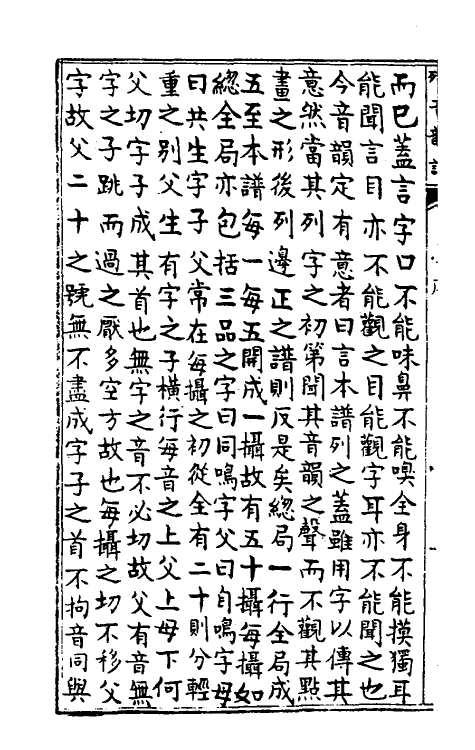 而已蓋言字口不能味鼻不能嗅全身不能摸獨耳
能聞言目亦不能觀之目能觀字耳亦不能聞之也
今音韻定有意者曰言本譜列之蓋雖用字以傳其
意然當其列字之初第聞其音韻之聲而不觀其點
畫之形後列邊正之譜則反是矣總局一行全局成
五至本譜每一每五開成一攝故有五十攝每攝如
總全局亦包括三品之字曰同鳴字父曰自鳴字母
曰共生字子父常在每攝之初從全有二十則分輕
重之别父生有字之子橫行每音之上父上母下何
父切字子成其首也無字之音不必切故父有音無
字之子跳而過之厭多空方故也每攝之切不移父
字故父二十之號無不盡成字子之首不拘音同與